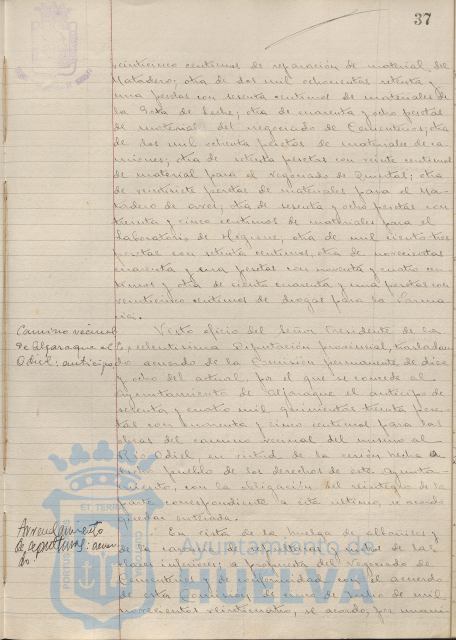 37
veinticinco centimos de reparación de material del
Matadero; otra de dos mil ochocientas setenta y
una pesetas con sesenta centimos de materiales de
la Gota de Leche; otra de cuarenta y ocho pesetas
de material del negociado de Cementerios; otra
de dos mil ochenta pesetas de materiales de ca-
miones; otra de setenta pesetas con veinte centimos
de material para el negociado de Quintas; otra
de veintisiete pesetas de materiales para el Ma-
tadero de aves; otra de sesenta y ocho pesetas con
treinta y cinco centimos de materiales para el
Laboratorio de Higiene; otra de mil ciento tres
pesetas con setenta centimos, otra de novecientas
cuarenta y una pesetas con noventa y cuatro cen-
timos y otra de ciento cuarenta y una pesetas con
veinticinco centimos de drogas para la Farma-
cia.
Camino vecinal
de Aljaraque al
Odiel: anticipo
Visto oficio del Señor Presidente de la
Excelentisima Diputación provincial, trasladan-
do acuerdo de la Comisión permanente de diez
y ocho del actual, por el que se concede al
Ayuntamiento de Aljaraque el anticipo de
sesenta y cuatro mil quinientas treinta pese-
tas con cuarenta y cinco centimos para las
obras del camino vecinal del mismo al
Rio Odiel, en virtud de la cesión hecha a
dicho pueblo de los derechos de este Ayunta-
miento, con la obligación del reintegro de la
parte correspondiente a este ultimo, se acordo
quedar enterada.
Arrendamiento
de sepulturas: acuer-
do.
En vista de la huelga de albañiles y
de la carencia de sepulturas y nichos de las
clases inferiores; a propuesta del Negociado de
Cementerios y de conformidad con el acuerdo
de esta Comisión, de cinco de Junio de mil
novecientos veinticuatro, se acordo, por unani-
Ayuntamiento de
HUELVA